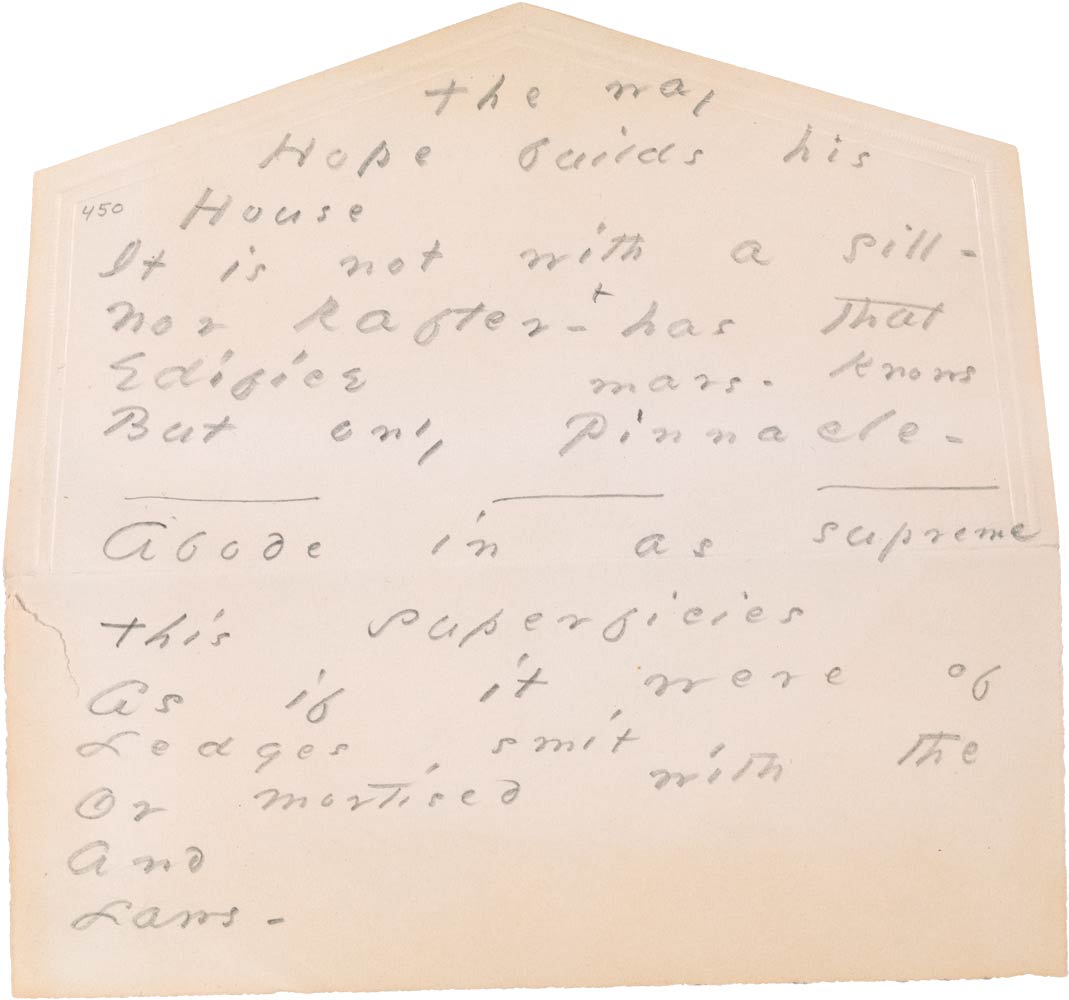 The way
Hope builds his
450 House
It is not with a sill -
Nor Rafter - + has that
Edifice mars - Knows
But only Pinnacle -
Abode in as supreme
This superficies
As if it were of
Ledges smit
Or mortised with the
And
Laws -